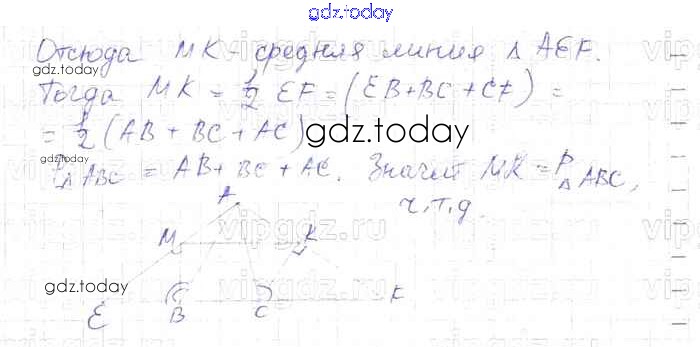 gdz.today
Отсюда MK - средняя линия △ AEF.
gdz.today
Тогда MK = 1/2 EF = (EB + BC + CF) =
= 1/2 (AB + BC + AC)
gdz.today
P△ABC = AB + BC + AC. Значит MK = P△ABC,
ч.т.д.
A
M K
gdz.today
E B C F
vipgdz.ru